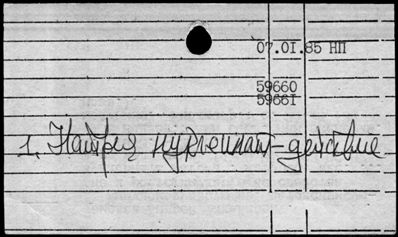 07.01.85 НП
59660
59661
1. Натрия нуклеинат-действие